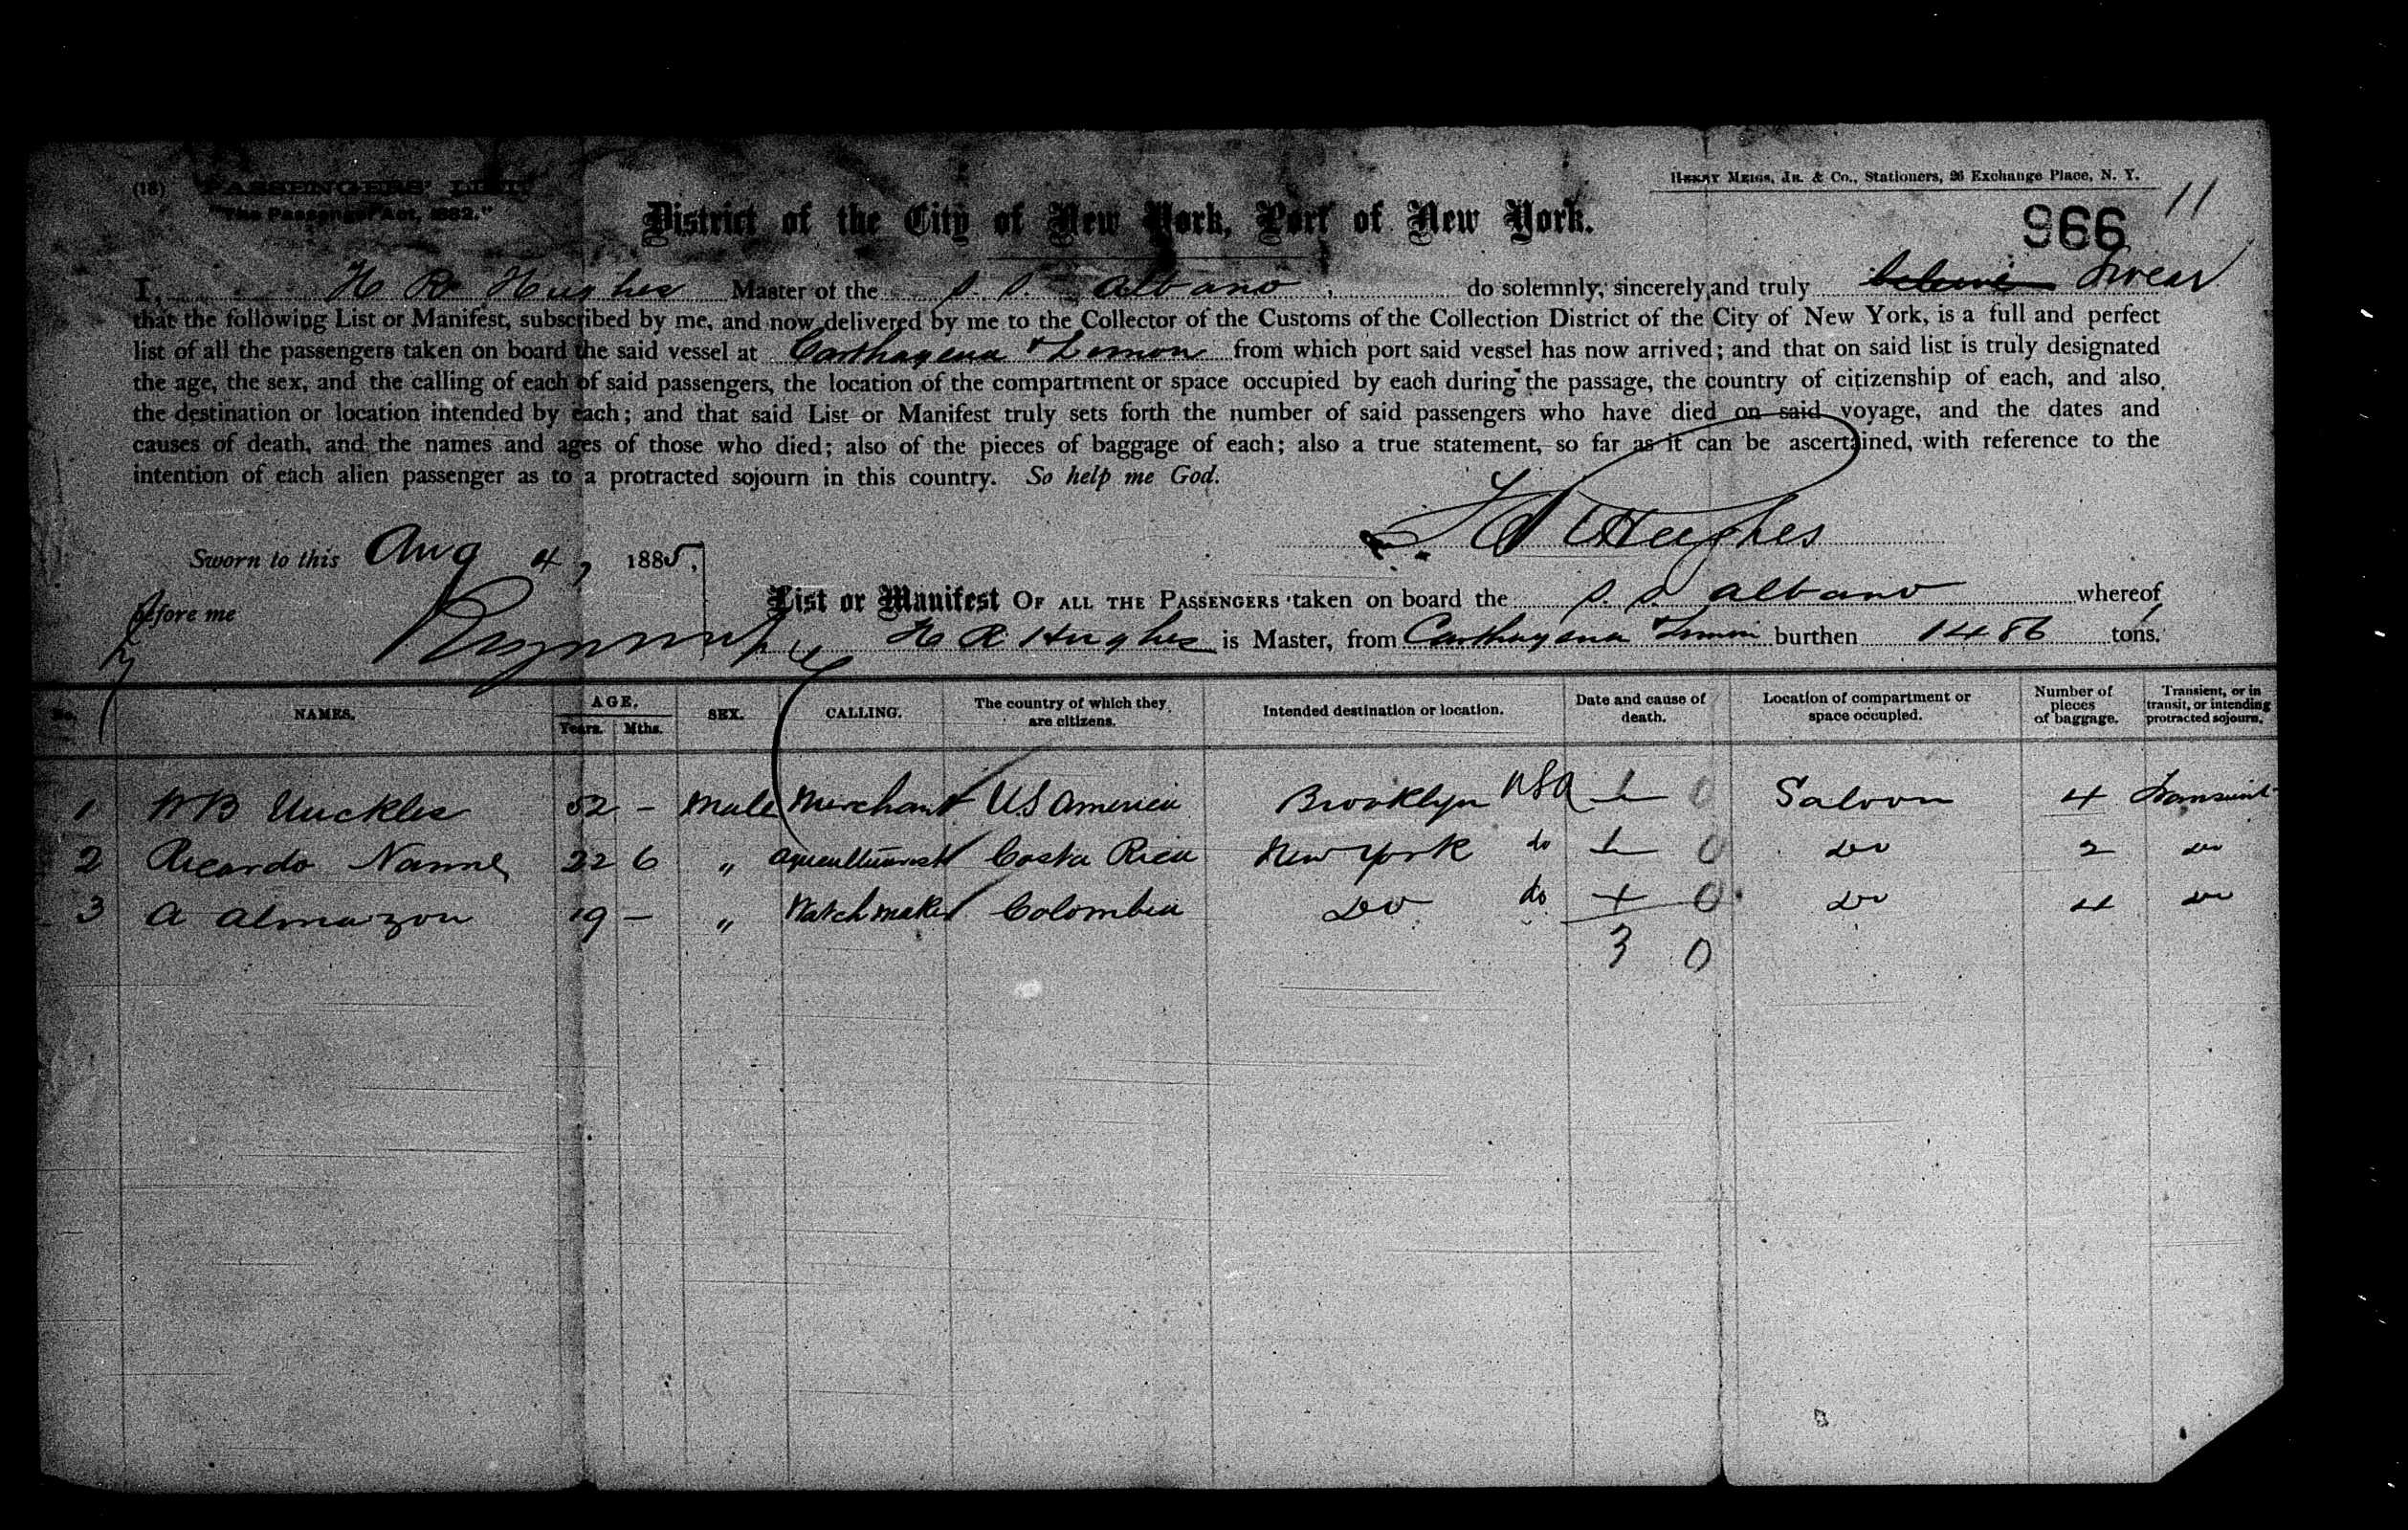 (18) "PASSENGERS' LIST."
"The Passenger Act, 1882."
HENRY MEIGS, JR. & Co., Stationers, 26 Exchange Place, N. Y.
11
District of the City of New York, Port of New York.
966
I, H R Hughes Master of the S. S. Albano do solemnly, sincerely and truly believe Swear
that the following List or Manifest, subscribed by me, and now delivered by me to the Collector of the Customs of the Collection District of the City of New York, is a full and perfect
list of all the passengers taken on board the said vessel at Carthagena & Limon from which port said vessel has now arrived; and that on said list is truly designated
the age, the sex, and the calling of each of said passengers, the location of the compartment or space occupied by each during the passage, the country of citizenship of each, and also
the destination or location intended by each; and that said List or Manifest truly sets forth the number of said passengers who have died on said voyage, and the dates and
causes of death, and the names and ages of those who died; also of the pieces of baggage of each; also a true statement, so far as it can be ascertained, with reference to the
intention of each alien passenger as to a protracted sojourn in this country. So help me God.
Hughes
Sworn to this Aug 4, 1885,
before me
List or Manifest OF ALL THE PASSENGERS taken on board the S. S. Albano whereof
H R Hughes is Master, from Carthagena & Limon burthen 1486 tons.
No. NAMES. AGE. Years. Mths. SEX. CALLING. The country of which they are citizens. Intended destination or location. Date and cause of death. Location of compartment or space occupied. Number of pieces of baggage. Transient, or in transit, or intending protracted sojourn.
1 W B Nuckles 52 – Male Merchant U.S America Brooklyn USA 1 0 Saloon 4 Transient
2 Ricardo Nanne 22 6 " Agriculturist Costa Rica New York do 1 0 Do 2 Do
3 A Almaizon 19 – " Watchmaker Colombia Do do 1 0 Do 4 Do
3 0